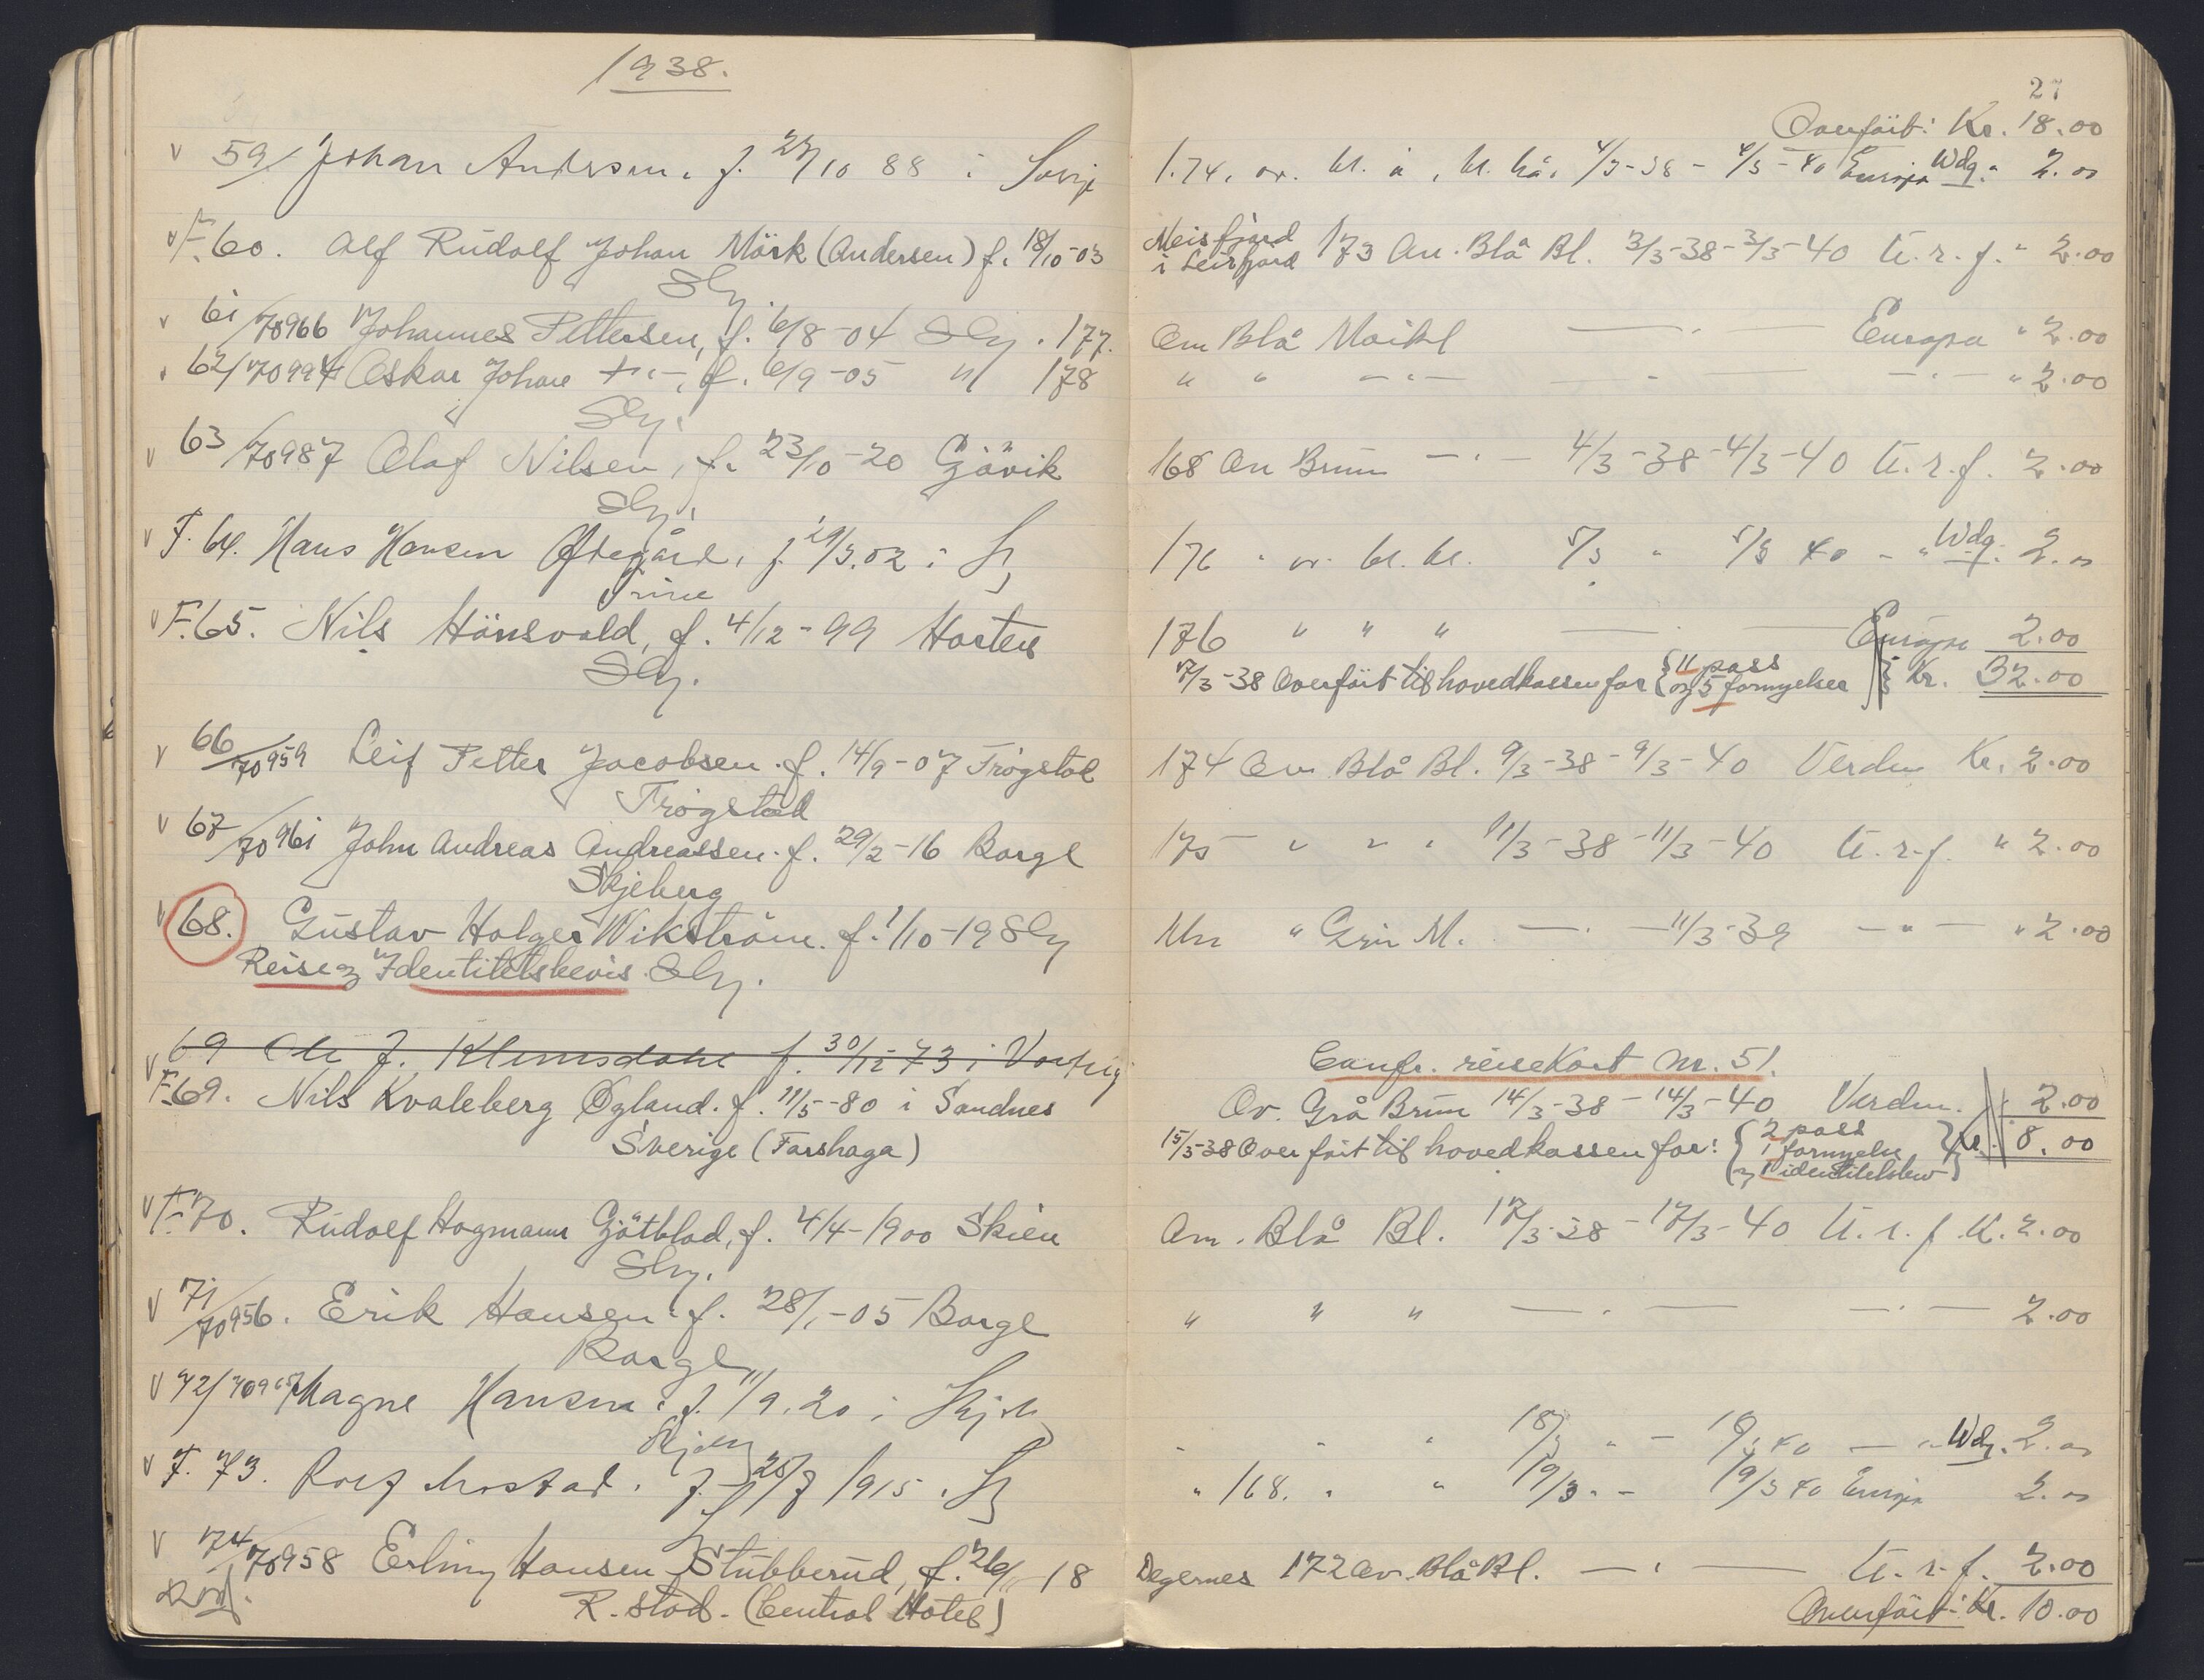 1938.
v 59/ Johan Andersen. f. 27/10 88 i Sverige
v F.60. Alf Rudolf Johan Mörk (Andersen) f. 18/10-03
Slg.
v 61/70966 Johannes Pettersen, f. 6/8-04 Slg. 177.
v 62/70994 Oskar Johan -"-, f. 6/9-05 " 178
Slg.
v 63/70987 Olaf Nilsen, f. 23/10-20 Gjövik
Slg.
v F.64. Hans Hansen f. 29/3.02 i
v F.65. Nils Hönsvald, f. 4/12-99 Horten
Slg.
v 66/70959 Leif Petter Jacobsen. f. 14/9-07 Trøgstad
Trøgstad
v 67/70961 John Andreas Andreassen. f. 29/2-16 Borge
Skjeberg
v 68. Gustav Holger Wikström. f. 1/10-19 Slg
Reise og Identitetsbevis. Slg.
v 69 Ole J. Klemsdahl f. 30/12-73 i
F.69. Nils Kvaleberg Øgland. f. 11/5-80 i Sandnes
Sverige (Forshaga)
v F.70. Rudolf Hogmann Götblad, f. 4/4-1900 Skien
Slg.
v 71/70956. Erik Hansen. f. 28/1-05 Borge
Borge
v 72/ Magne Hansen. f. 11/9.20 i
v F. 73. Rolf f. 25/7 1915.
v 74/70958 Erling Hansen Stubberud, f. 26/11-18
R.stad. (Central Hotel)
27
Overført: Kr. 18.00
1.74. ov. bl. å, bl. hå. 4/3-38 - 4/3-40 Europa Wdg. " 2.00
Meisfjord
i Leirfjord 173 An. Blå Bl. 3/3-38-3/3-40 U.r.f. " 2.00
Om Blå Mörkbl — " — Europa " 2.00
" " -"- — " — -"- " 2.00
168 On Brun -"- 4/3-38-4/3-40 U.r.f. 2.00
176 " ov. bl. bl. 5/3 " 5/3 40 - " Wdg. 2.00
176 " " " — " — Europa 2.00
7/3-38 Overført til hovedkassen for { 11 pass
og 5 fornyelser } Kr. 32.00
174 Ov Blå Bl. 9/3-38-9/3-40 Verden Kr. 2.00
175 " " " 11/3-38-11/3-40 U.r.f. " 2.00
" Grå M. — " — 11/3-39 -"- " 2.00
Confr. reisekort nr. 51.
Ov. Grå Brun 14/3-38-14/3-40 Verden. 2.00
15/3-38 Overført til hovedkassen for: { 2 pass
1 fornyelse
og 1 identitetsbev } Kr. 8.00
Om. Blå Bl. 17/3-38-17/3-40 U.r.f. K. 2.00
" " " — " — -"- 2.00
" " " 18/3 " - 18/3 40 — " Wdg. 2.00
" 168. " " 19/3 " - 19/3 40 Europa 2.00
Degernes 172 Ov. Blå Bl. — " — U.r.f. 2.00
Overført: Kr. 10.00